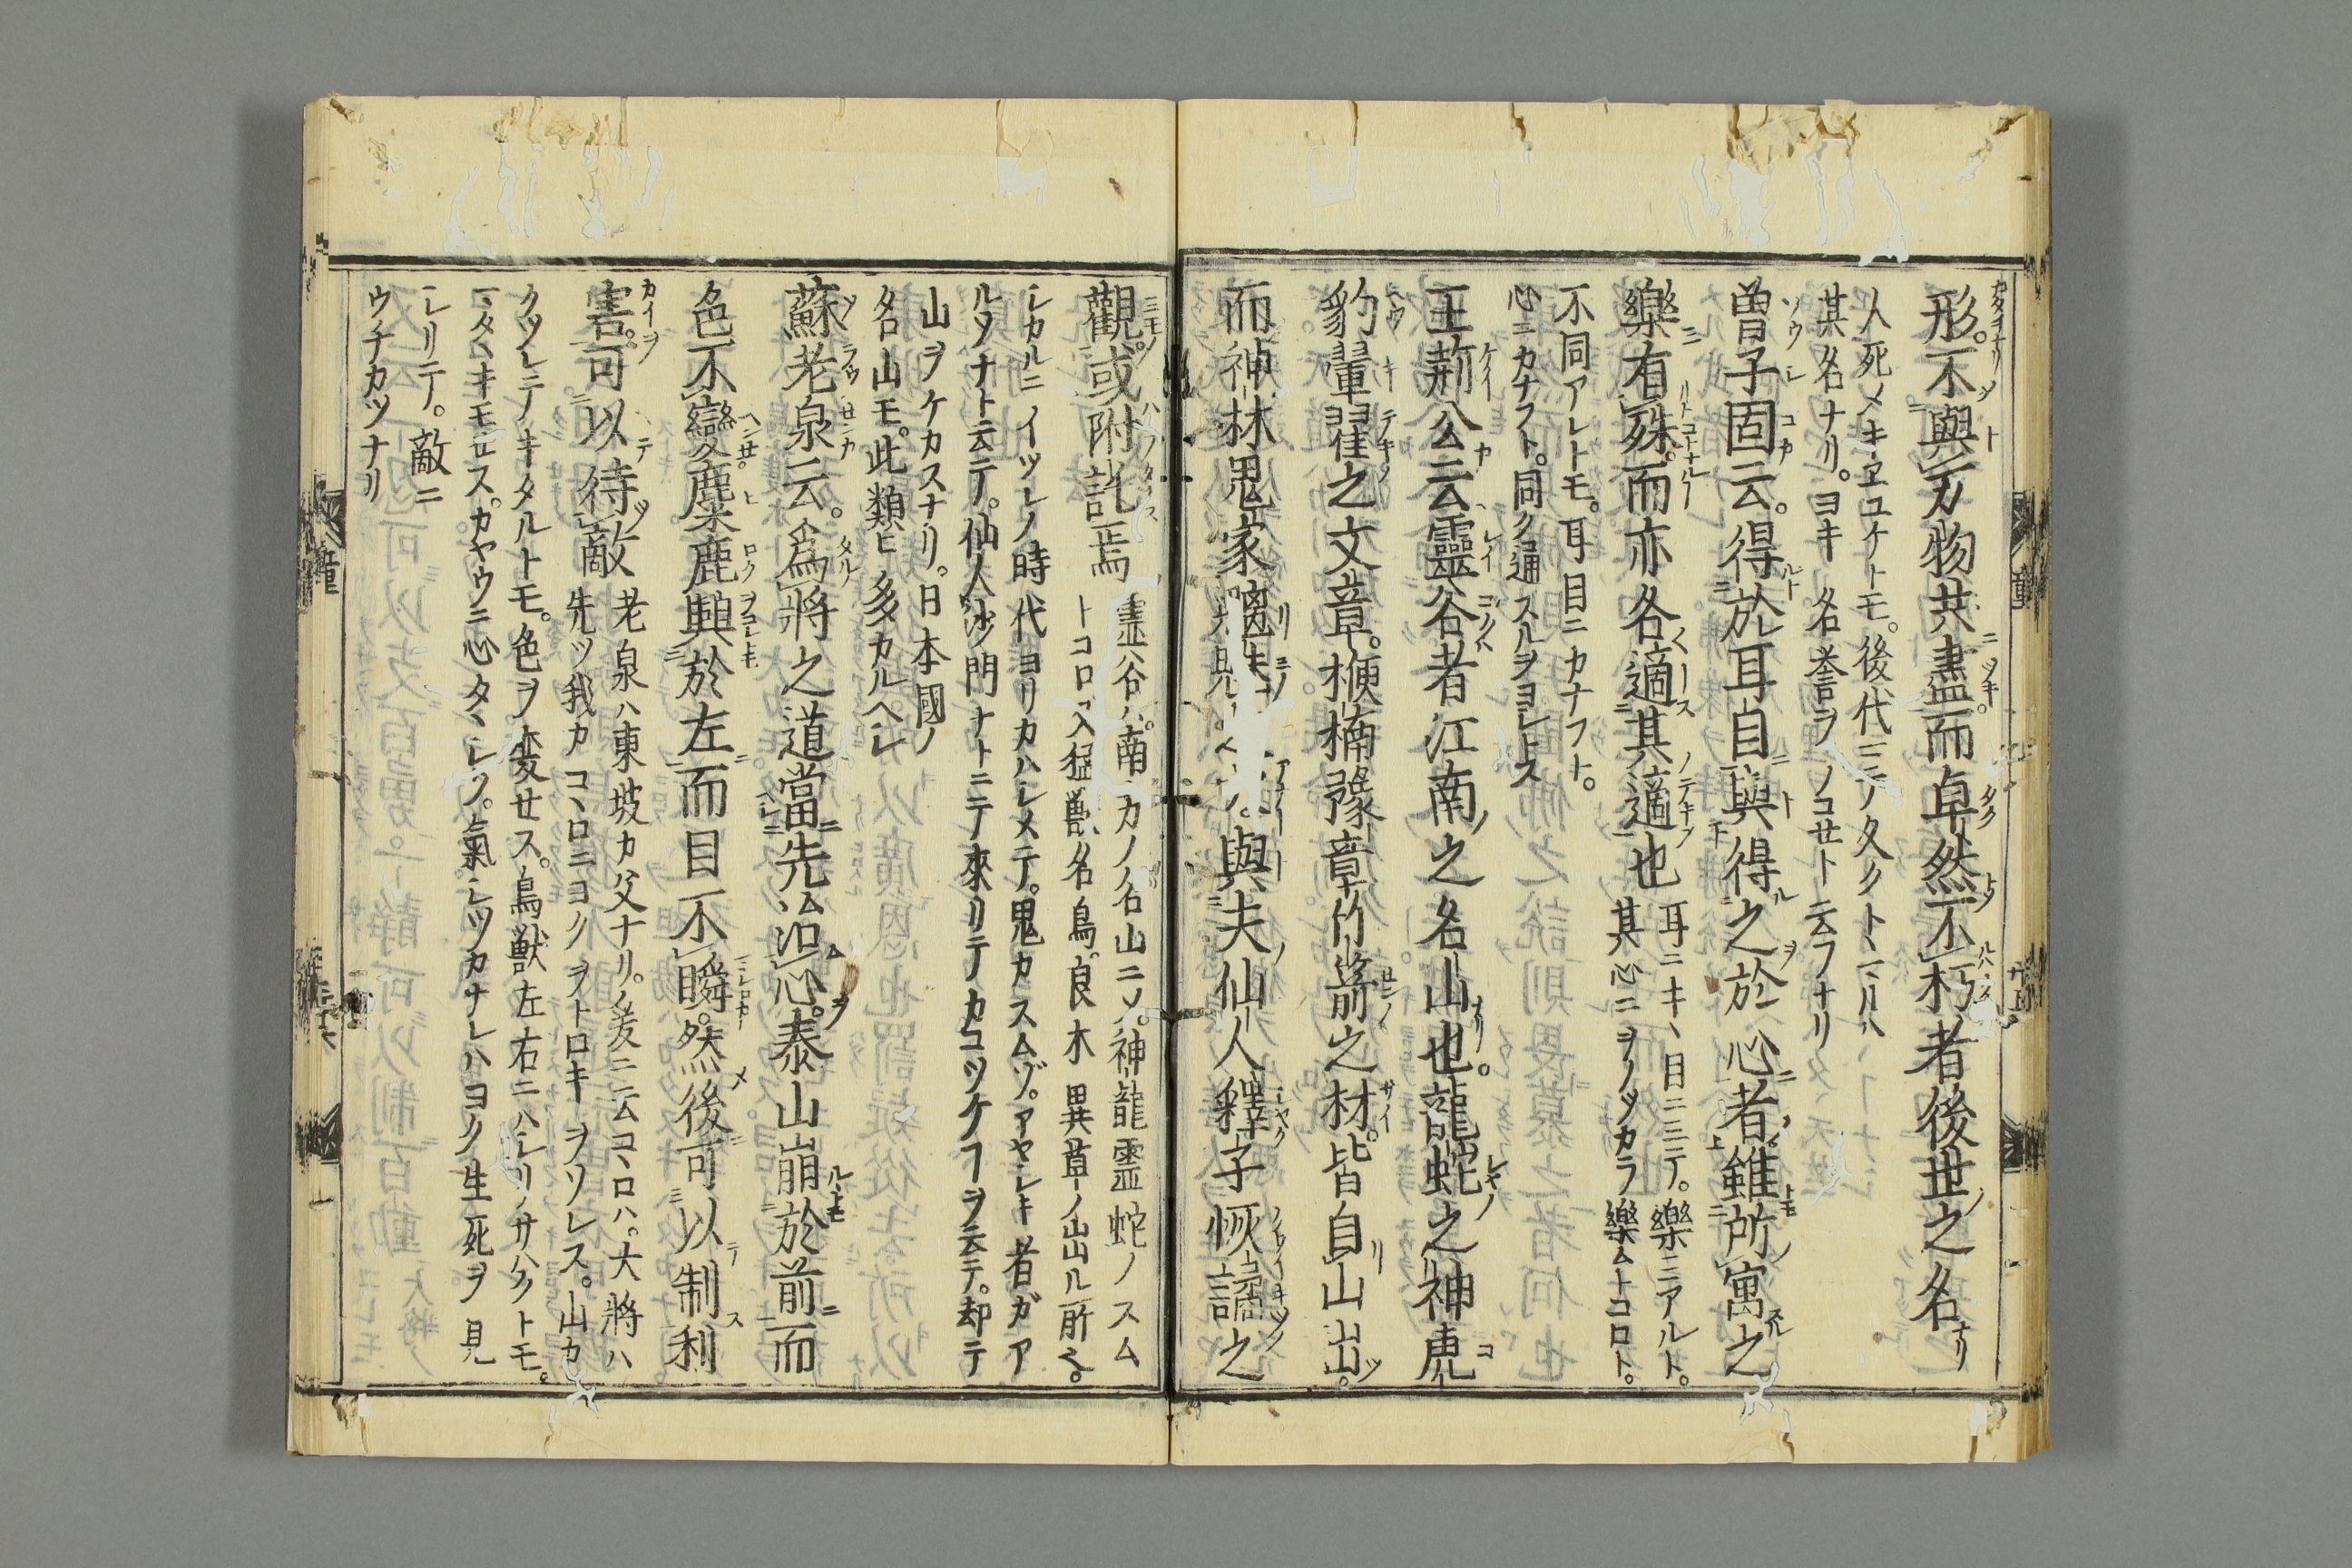 形。不與万物共盡。而卓然不朽者後世之名
人死メキヱユケトモ。後代ニテノ久クトヽマルハ
其名ナリ。ヨキ名誉ヲノコセト云フナリ
曽子固云。得於耳目與得之於心者雖所寓之
樂有殊。而亦各適其適也
耳ニキヽ目ニミテ。樂ニアルト。
其心ニヲノツカラ樂ムトコロト。
不同アレトモ。耳目ニカナフト。
心ニカナフト。同ク通スルヲヨシトス
王荊公云靈谷者江南之名山也。龍蛇之神虎
豹翬翟之文章。楩楠豫章竹箭之材。皆自山出。
而神林鬼冢魑魅之與夫仙人釋子恢譎之
觀。或附託焉
霊谷ハ。南カノ名山ニソ。神龍霊蛇ノスム
トコロ。又猛獣名鳥。良木異草ノ出ル所ヘ。
シカルニイツレノ時代ヨリカハシメテ。鬼カスムゾ。アヤシキ者ガア
ルソナト云テ。仙人沙門ナトニテ來リテカコツケフヲ云テ。却テ
山ヲケカスナリ。日本國ノ
名山モ。此類ヒ多カルヘシ
蘇老泉云。爲將之道當先治心。泰山崩於前而
色不變麋鹿興於左而目不瞬。然後可以制利
害。可以待敵
老泉ハ東坡カ父ナリ。爰ニ云コヽロハ。大將ハ
先ツ我カコヽロニヨクヲトロキヲソレス。山カ
クツレテキタルトモ。色ヲ変セス。鳥獣左右ニハシリノサハクトモ。
マタヽキモセス。カヤウニ心タヽシク。氣シツカナレハヨク生死ヲ見
シリテ。敵ニ
ウチカツナリ